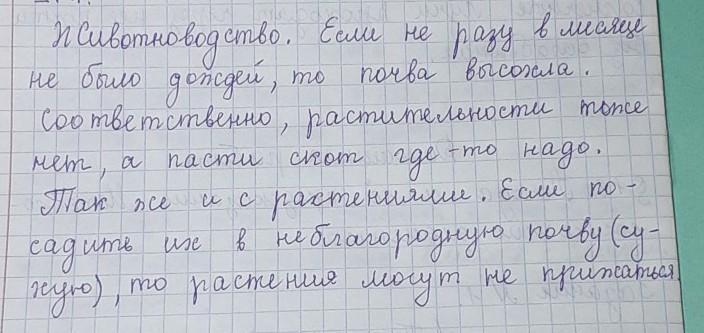 Животноводство. Если не разу в месяце
не было дождей, то почва высохла.
Соответственно, растительности тоже
нет, а пасти скот где-то надо.
Так же и с растениями. Если по-
садить их в неблагородную почву (су-
хую), то растения могут не прижаться